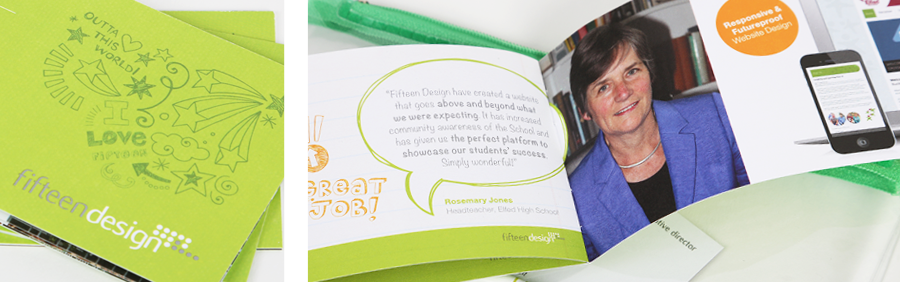 OUTTA
THIS
WORLD!
I
LOVE
fifteendesign
GREAT
JOB!
"Fifteen Design have created a website
that goes above and beyond what
we were expecting. It has increased
community awareness of the School and
has given us the perfect platform to
showcase our students' success.
Simply wonderful!"
Rosemary Jones
Headteacher, Elfed High School
fifteendesign
Responsive &
Futureproof
Website Design
director